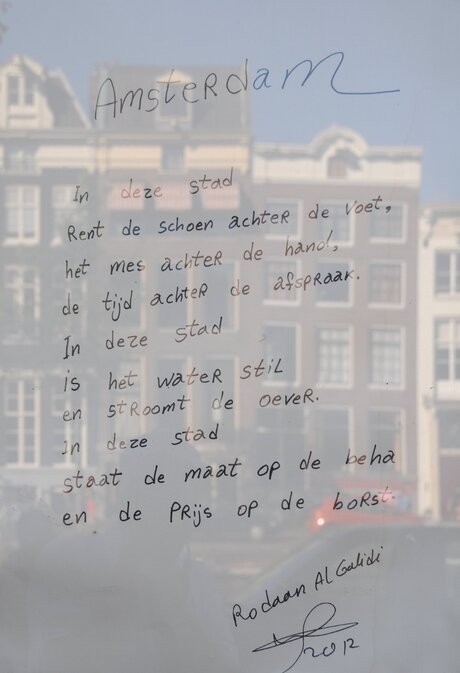 Amsterdam
In deze stad
Rent de schoen achter de voet,
het mes achter de hand,
de tijd achter de afspraak.
In deze stad
is het water stil
en stroomt de oever.
In deze stad
staat de maat op de beha
en de prijs op de borst.
Rodaan Al Galidi
2012